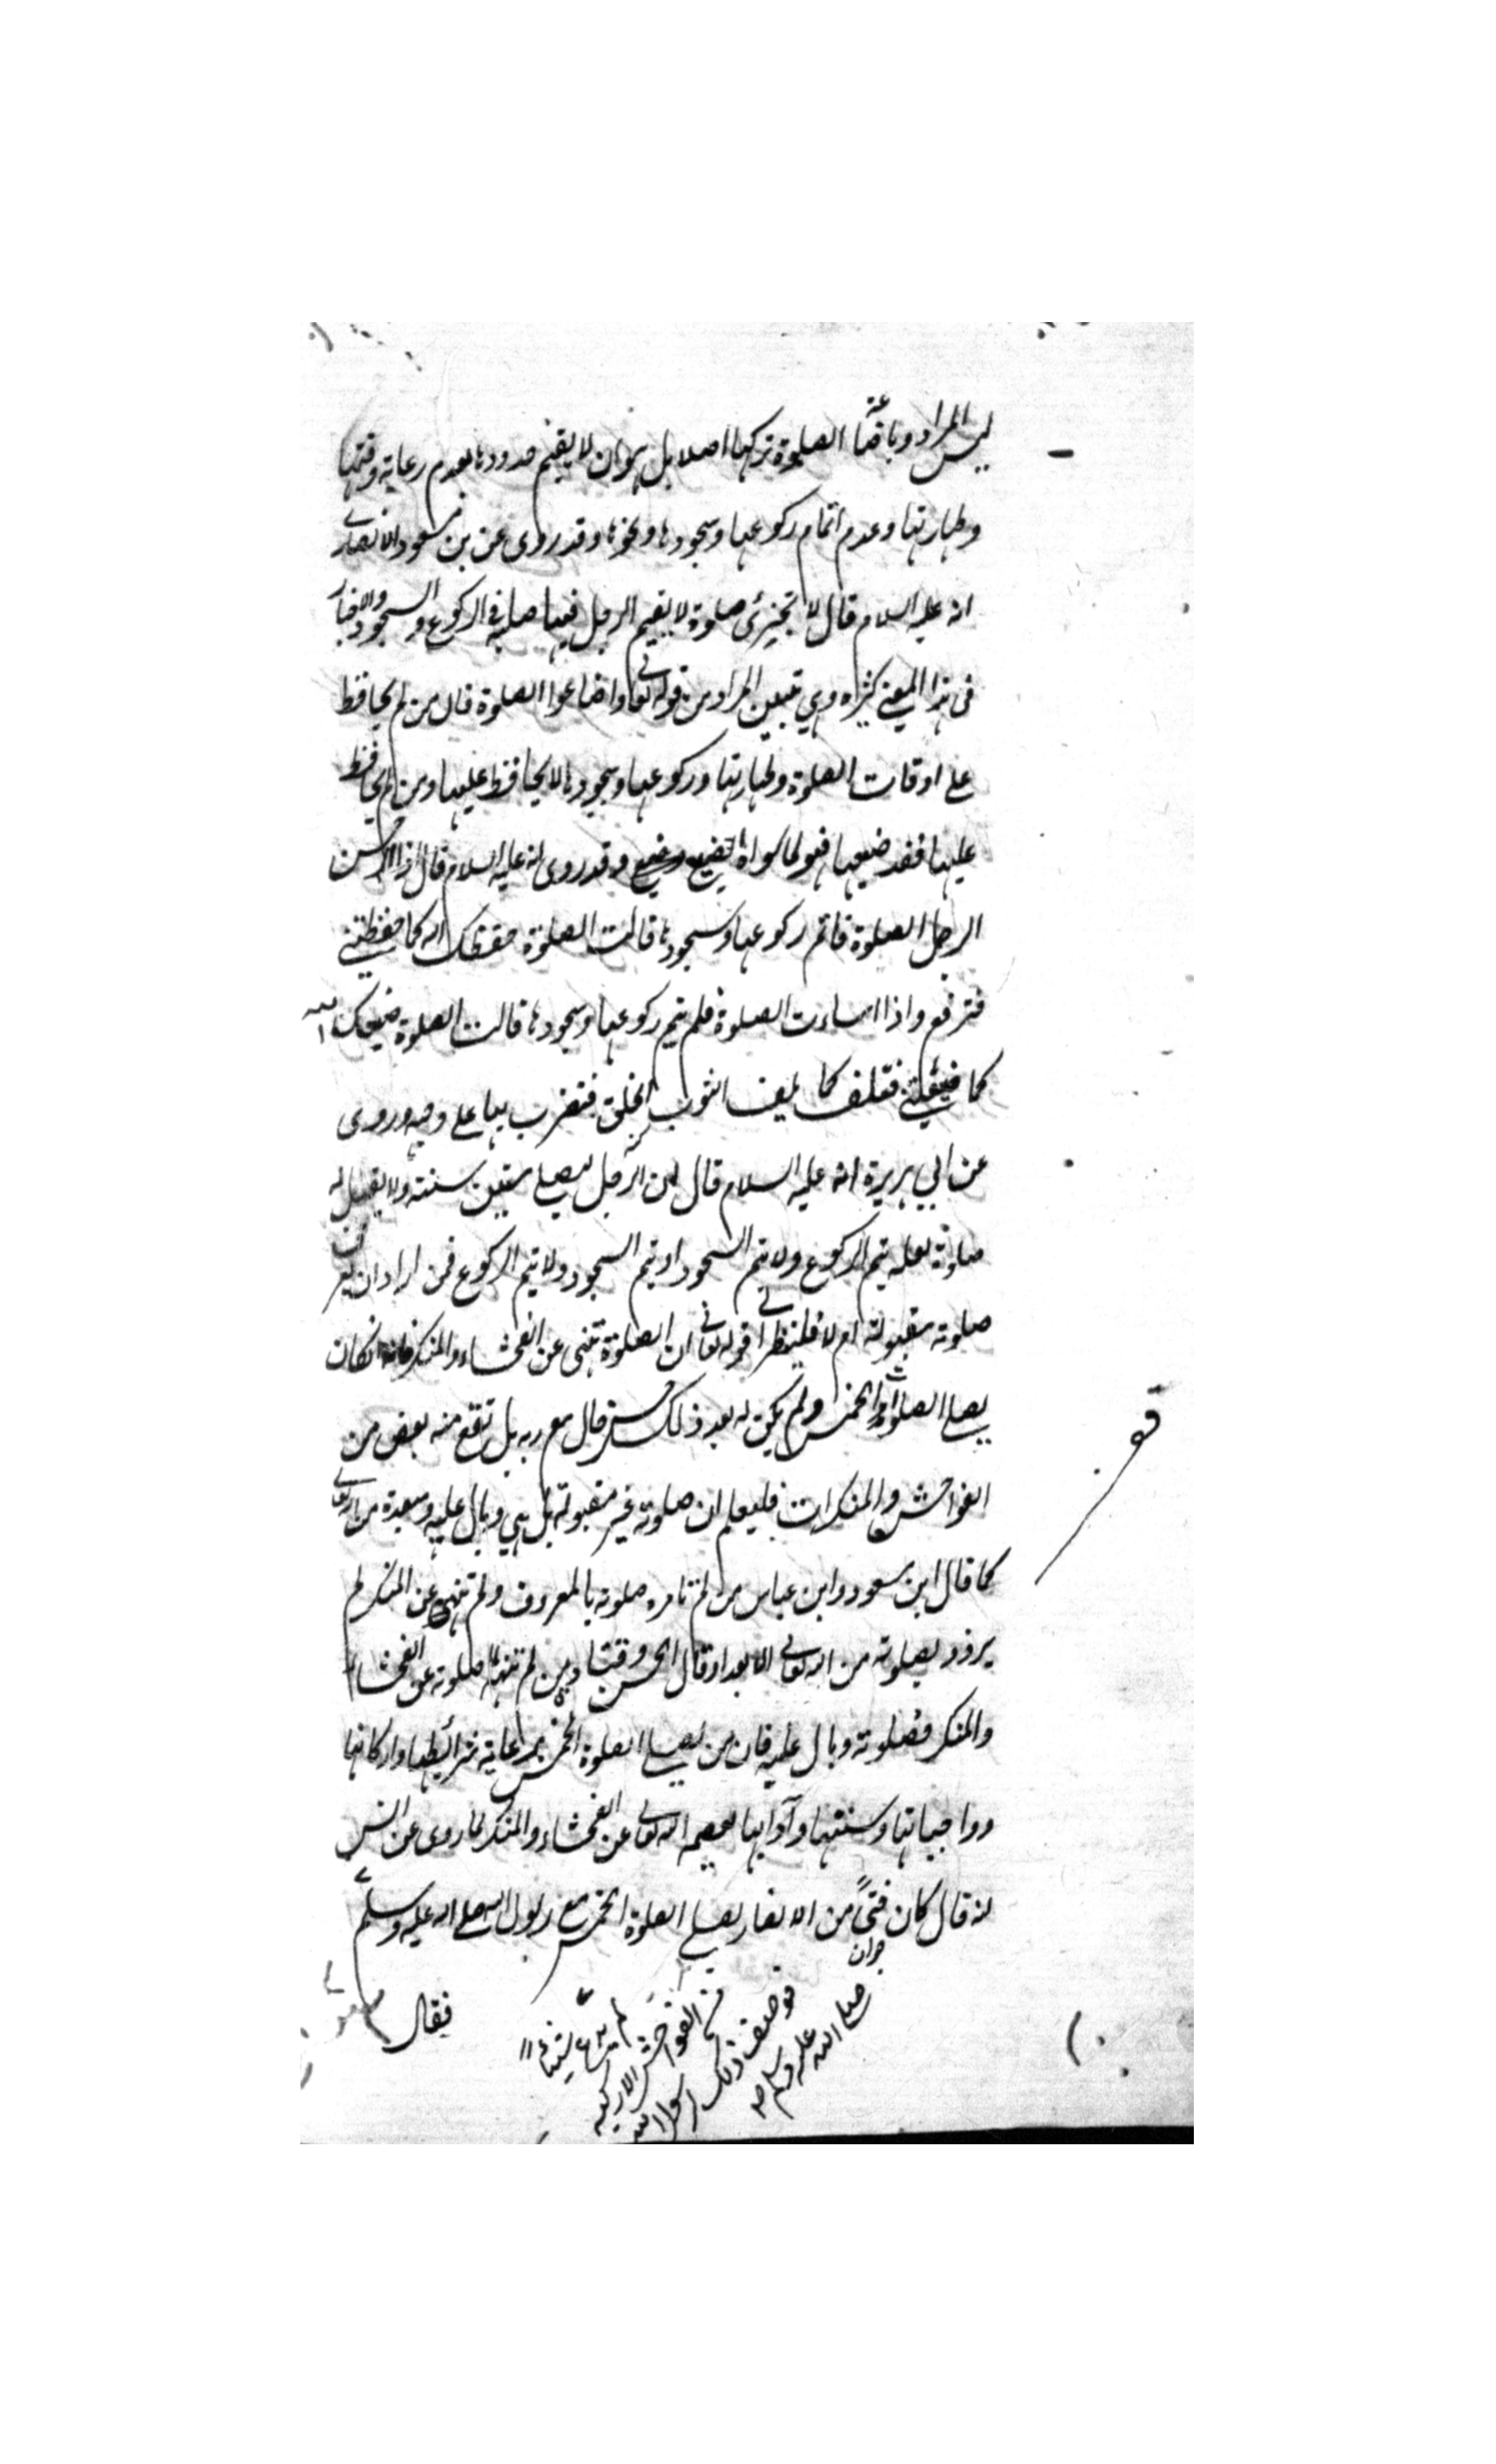 ليس المراد وباضاعة الصلوة تركها اصلا بل هو ان لا يقيم حدودها بعدم رعاية وقتها
وطهارتها وعدم اتمام ركوعها وسجودها ونحوها وقد روى عن بن مسعود الانصارى
انه عليه السلام قال لا تجزئ صلوة لا يقيم الرجل فيها صلبه فى الركوع والسجود والاخبار
فى هذا المعنى كثيره وهي تبين المراد من قوله تعالى واضاعوا الصلوة فان من لم يحافظ
على اوقات الصلوة وطهارتها وركوعها وسجودها لا يحافظ عليها ومن لم يحافظ
عليها فقد ضيعها فهو لما سواها اضيع وقد روى انه عليه السلام قال اذا احسن
الرجل الصلوة فاتم ركوعها وسجودها قالت الصلوة حفظك الله كما حفظتني
فترفع واذا اساءت الصلوة فلم يتم ركوعها وسجودها قالت الصلوة ضيعك الله
كما ضيعتني فتلف كما يلف الثوب الخلق فتضرب بها على وجهه وروى
عن ابي هريرة انه عليه السلام قال ان الرجل ليصلي ستين سنته ولا يقبل له
صلوة لعله يتم الركوع ولا يتم السجود او يتم السجود ولا يتم الركوع فمن اراد ان يعرف ان
صلوته مقبولة ام لا فلينظر قوله تعالى ان الصلوة تنهى عن الفحشاء والمنكر فانه ان كان
يصلي الصلوات الخمس ولم يكن له بعد ذلك حسن حال مع ربه بل تقع منه بعض من
الفواحش والمنكرات فليعلم ان صلوته غير مقبولة بل هي وبال عليه ومبعدة من الله تعالى
كما قال ابن مسعود وابن عباس من لم تامره صلوته بالمعروف ولم تنهه عن المنكر لم
يزدد بصلوته من الله تعالى الا بعدا وقال الحسن وقتادة من لم تنهه صلوته عن الفحشاء
والمنكر فصلوته وبال عليه فان من يصلي الصلوة الخمس برعاية شرائطها واركانها
وواجباتها وسنتها وآدابها يعصمه الله تعالى عن الفحشاء والمنكر لما روى عن انس
انه قال كان فتىً من الانصار يصلي الصلوة الخمس مع رسول الله صلى الله عليه وسلم
جوان
لم يدع شيئا
من الفواحش الا ركبه
فوصف ذلك لرسول الله
صلى الله عليه وسلم
فقال